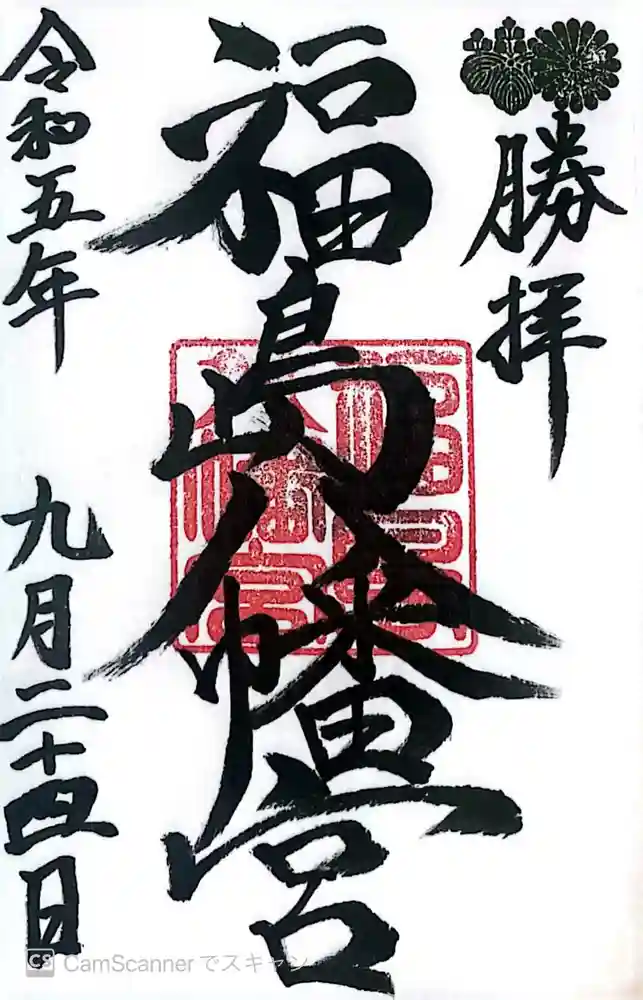 勝拝
福島八幡宮
令和五年 九月二十四日
CS CamScannerでスキャン